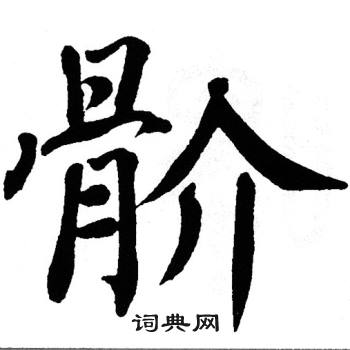 骱
词典网